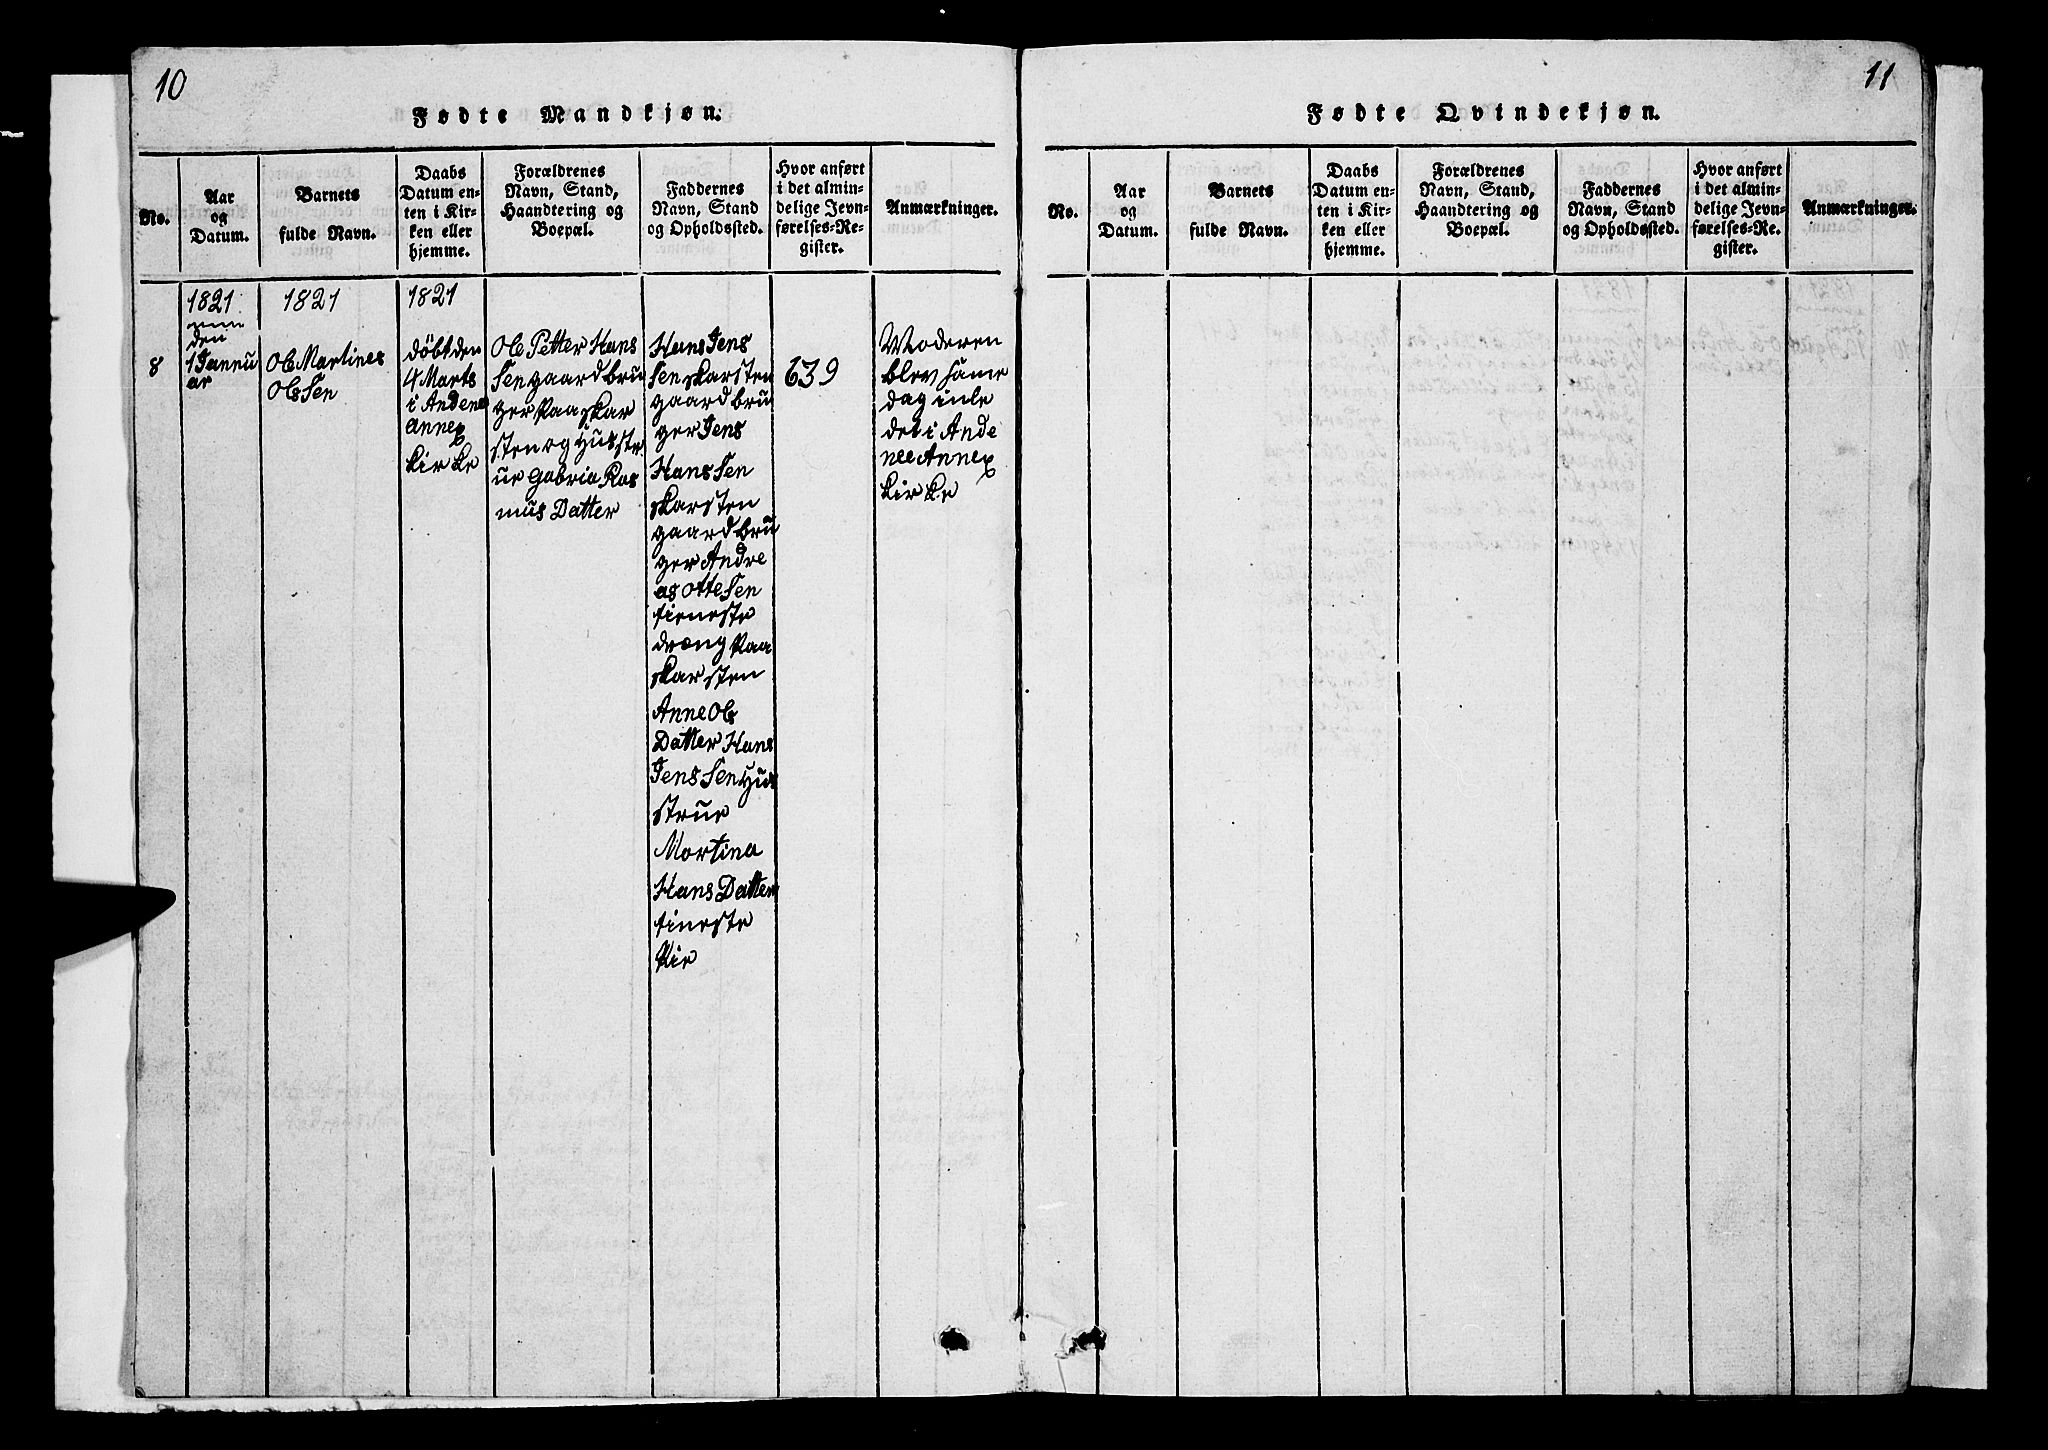 10
Fødte Mandkjøn.
No.
Aar
og
Datum.
Barnets
fulde Navn.
Daabs
Datum en-
ten i Kir-
ken eller
hjemme.
Forældrenes
Navn, Stand,
Haandtering og
Boepæl.
Faddernes
Navn, Stand
og Opholdssted.
Hvor anført
i det almin-
delige Jevn-
førelses-Re-
gister.
Anmærkninger.
8
1821
den
1 Jannu
ar
1821
Ole Martines
OleSen
1821
döbt den
4 Marts
i Andenes
annex
kirke
Ole Petter Hans
Sen gaardbru
ger Paa Skar
sten og Hüsst
rue gabria Ras
mus Datter
Hans Jens
Sen Skarsten
gaardbrü
ger Jens
Hans Sen
Skarsten
gaardbrü
ger Andre
as otteSen
tieneste
dræng Paa
Skarsten
Anne Ole
Datter Hans
Jens Sen Hüs
strue
Mortina
Hans Datter
tineste
Pie
639
Moderen
blev same
dag inle
det i Ande
nes Annex
kirke
11
Fødte Qvindekjøn.
No.
Aar
og
Datum.
Barnets
fulde Navn.
Daabs
Datum en-
ten i Kir-
ken eller
hjemme.
Forældrenes
Navn, Stand,
Haandtering og
Boepæl.
Faddernes
Navn, Stand
og Opholdssted.
Hvor anført
i det almin-
delige Jevn-
førelses-Re-
gister.
Anmærkninger.